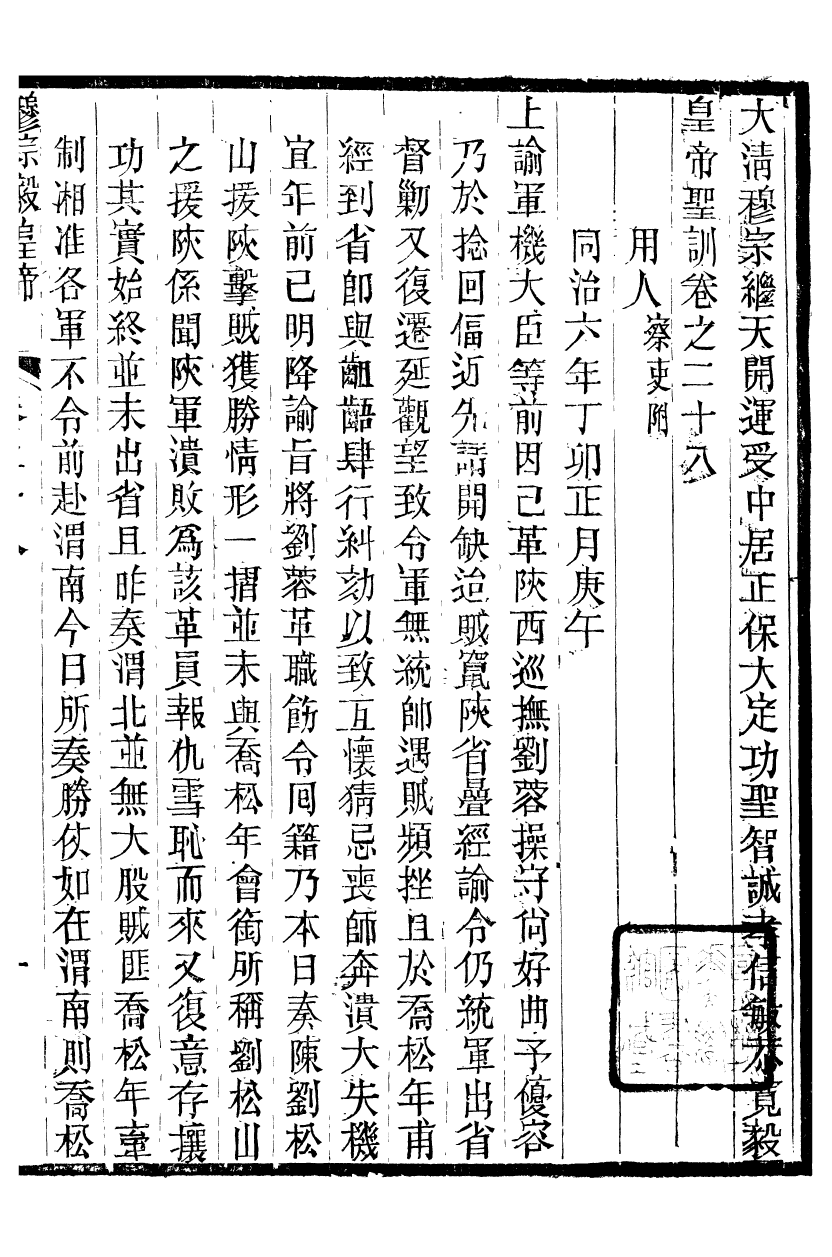 大清穆宗繼天開運受中居正保大定功聖智誠孝信敏恭寬毅
皇帝聖訓卷之二十八
用人察吏附
同治六年丁卯正月庚午
上諭軍機大臣等前因已革陝西巡撫劉蓉操守尙好曲予優容
乃於捻回偪近先請開缺迨賊竄陝省疊經諭令仍統軍出省
督勦又復遷延觀望致令軍無統帥遇賊頻挫且於喬松年甫
經到省卽與齟齬肆行糾劾以致互懷猜忌喪師奔潰大失機
宜年前已明降諭旨將劉蓉革職飭令回籍乃本日奏陳劉松
山援陝擊賊獲勝情形一摺並未與喬松年會銜所稱劉松山
之援陝係聞陝軍潰敗爲該革員報仇雪恥而來又復意存攘
功其實始終並未出省且昨奏渭北並無大股賊匪喬松年牽
制湘淮各軍不令前赴渭南今日所奏勝仗如在渭南則喬松
穆宗毅皇帝